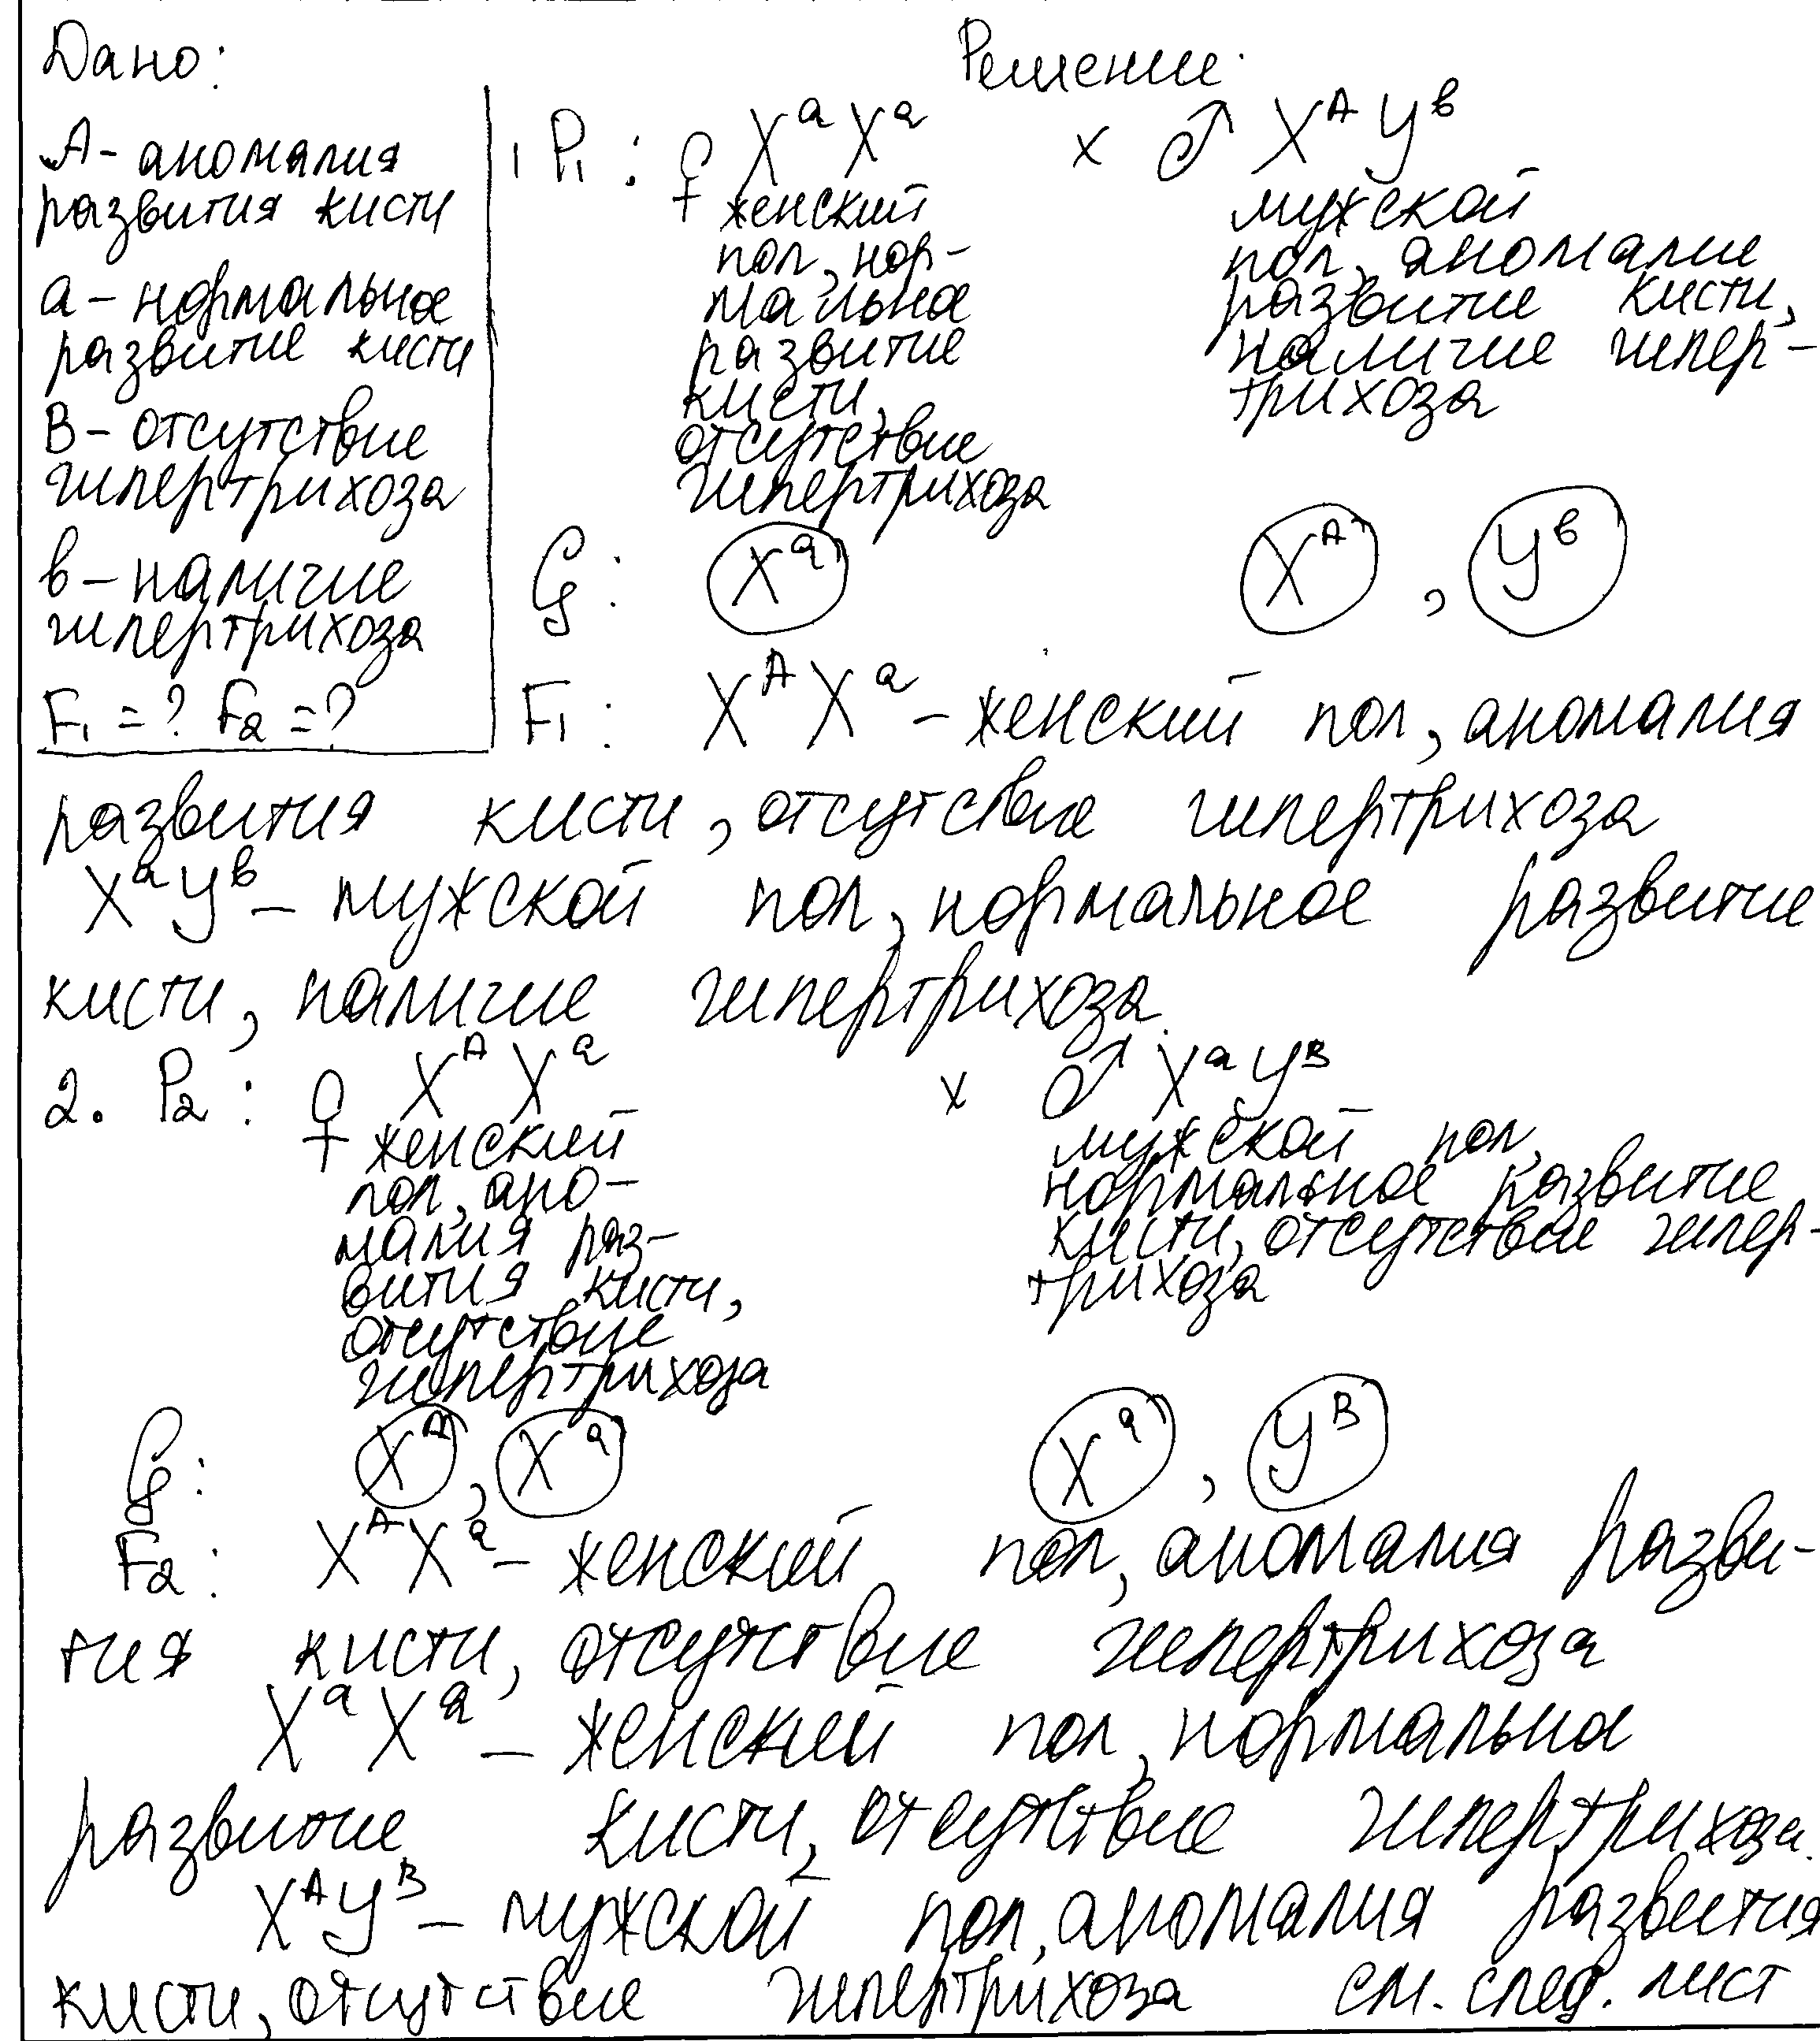 Дано:
Решение.
А - аномалия
развития кисти
а - нормальное
развитие кисти
В - отсутствие
гипертрихоза
в - наличие
гипертрихоза
F₁ = ? F₂ = ?
1 P₁ : ♀ XᵃXᵃ × ♂ XᴬYᵇ
женский
пол, нор-
мальное
развитие
кисти,
отсутствие
гипертрихоза
мужской
пол, аномалие
развитие кисти,
наличие гипер-
трихоза
G : Xᵃ Xᴬ , Yᵇ
F₁ : XᴬXᵃ - женский пол, аномалия
развития кисти, отсутствие гипертрихоза
XᵃYᵇ - мужской пол, нормальное развитие
кисти, наличие гипертрихоза.
2. P₂ : ♀ XᴬXᵃ × ♂ XᵃYᴮ
женский
пол, ано-
малия раз-
вития кисти,
отсутствие
гипертрихоза
мужской пол,
нормальное развитие
кисти, отсутствие гипер-
трихоза
G : Xᴬ , Xᵃ Xᵃ , Yᴮ
F₂ : XᴬXᵃ - женский пол, аномалия разви-
тия кисти, отсутствие гипертрихоза
XᵃXᵃ - женский пол, нормальное
развитие кисти, отсутствие гипертрихоза.
XᴬYᴮ - мужской пол, аномалия развития
кисти, отсутствие гипертрихоза см. след. лист